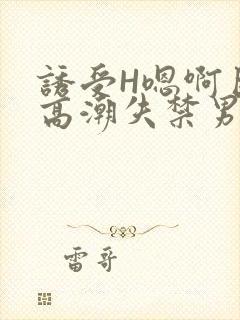 誘受H嗯啊
高潮失禁男
雷哥